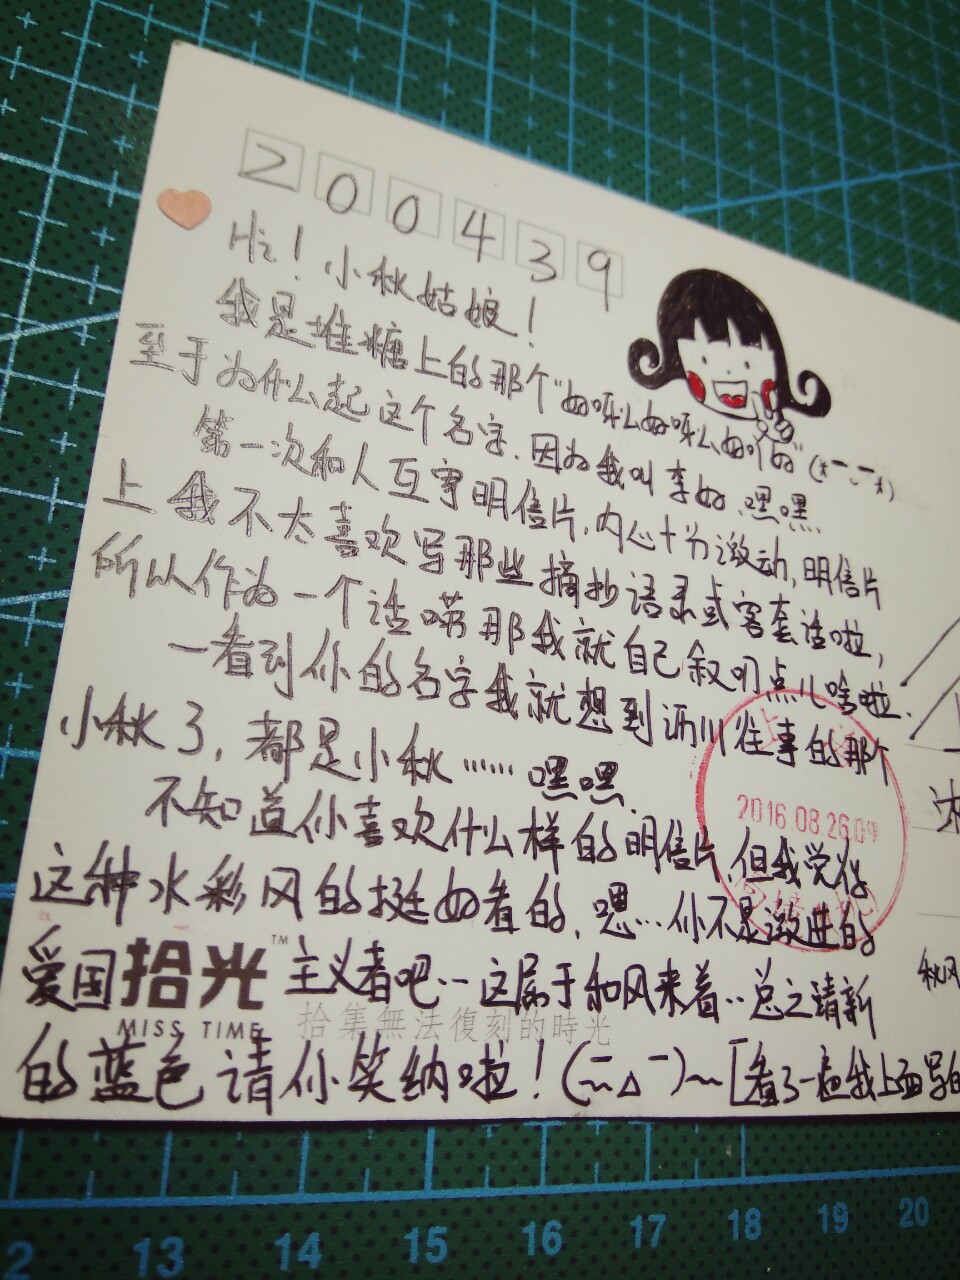 200439
Hi！小秋姑娘！
我是堆糖上的那个"如呀么如呀么如吖如"
至于为什么起这个名字，因为我叫李如，嘿嘿
第一次和人互寄明信片，内心十分激动，明信片
上我不太喜欢写那些摘抄语录或客套话啦，
所以作为一个话唠那我就自己叙叨点儿啥啦．
一看到你的名字我就想到沥川往事的那个
小秋了，都是小秋……嘿嘿．
不知道你喜欢什么样的明信片，但我觉得
这种水彩风的挺好看的，嗯…你不是激进的
爱国主义者吧…这属于和风来着…总之清新
的蓝色请你笑纳啦！(￣△￣)～[看了一遍我上面写的
拾光™
MISS TIME
拾集無法復刻的時光
2016.08.26.09
秋风
12 13 14 15 16 17 18 19 20